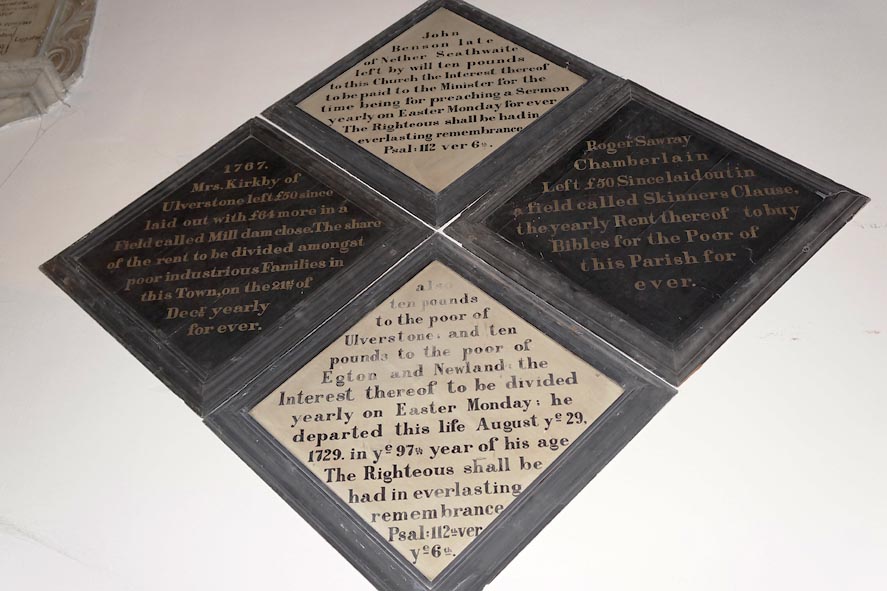 John
Benson late
of Nether Scathwaite
left by will ten pounds
to this Church the Interest thereof
to be paid to the Minister for the
time being for preaching a Sermon
yearly on Easter Monday for ever
The Righteous shall be had in
everlasting remembrance
Psal: 112 ver 6th.
1767.
Mrs. Kirkby of
Ulverstone left £50 since
laid out with £64 more in a
Field called Mill dam close. The share
of the rent to be divided amongst
poor industrious Families in
this Town, on the 21st of
Decr yearly
for ever.
Roger Sawray
Chamberlain
Left £50 Since laid out in
a field called Skinners Clause.
the yearly Rent thereof to buy
Bibles for the Poor of
this Parish for
ever.
also
ten pounds
to the poor of
Ulverstone, and ten
pounds to the poor of
Egton and Newland: the
Interest thereof to be divided
yearly on Easter Monday; he
departed this life August ye 29,
1729. in ye 97th year of his age
The Righteous shall be
had in everlasting
remembrance
Psal: 112th ver
ye 6th.